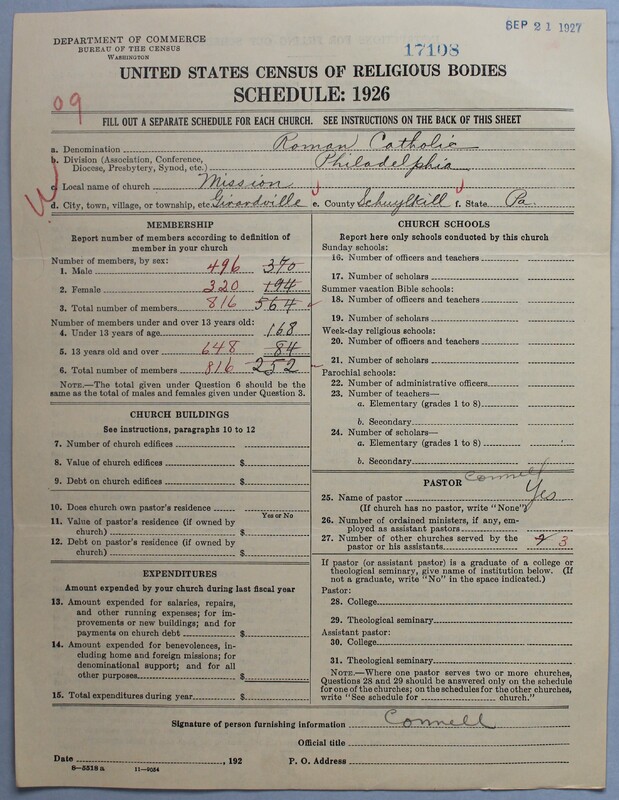 SEP 21 1927
DEPARTMENT OF COMMERCE
BUREAU OF THE CENSUS
WASHINGTON
17108
UNITED STATES CENSUS OF RELIGIOUS BODIES
SCHEDULE: 1926
09
FILL OUT A SEPARATE SCHEDULE FOR EACH CHURCH. SEE INSTRUCTIONS ON THE BACK OF THIS SHEET
a. Denomination Roman Catholic
b. Division (Association, Conference, Diocese, Presbytery, Synod, etc.) Philadelphia
c. Local name of church Mission
d. City, town, village, or township, etc. Girardville e. County Schuylkill f. State Pa.
MEMBERSHIP
Report number of members according to definition of
member in your church
Number of members, by sex:
1. Male 496 370
2. Female 320 194
3. Total number of members 816 564
Number of members under and over 13 years old:
4. Under 13 years of age 168
5. 13 years old and over 648 84
6. Total number of members 816 252
NOTE.—The total given under Question 6 should be the
same as the total of males and females given under Question 3.
CHURCH BUILDINGS
See instructions, paragraphs 10 to 12
7. Number of church edifices
8. Value of church edifices $
9. Debt on church edifices $
10. Does church own pastor's residence
Yes or No
11. Value of pastor's residence (if owned by
church) $
12. Debt on pastor's residence (if owned by
church) $
EXPENDITURES
Amount expended by your church during last fiscal year
13. Amount expended for salaries, repairs,
and other running expenses; for im-
provements or new buildings; and for
payments on church debt $
14. Amount expended for benevolences, in-
cluding home and foreign missions; for
denominational support; and for all
other purposes $
15. Total expenditures during year $
CHURCH SCHOOLS
Report here only schools conducted by this church
Sunday schools:
16. Number of officers and teachers
17. Number of scholars
Summer vacation Bible schools:
18. Number of officers and teachers
19. Number of scholars
Week-day religious schools:
20. Number of officers and teachers
21. Number of scholars
Parochial schools:
22. Number of administrative officers
23. Number of teachers—
a. Elementary (grades 1 to 8)
b. Secondary
24. Number of scholars—
a. Elementary (grades 1 to 8)
b. Secondary
PASTOR
25. Name of pastor Connell Yes
(If church has no pastor, write "None")
26. Number of ordained ministers, if any, em-
ployed as assistant pastors
27. Number of other churches served by the
pastor or his assistants 3
If pastor (or assistant pastor) is a graduate of a college or
theological seminary, give name of institution below. (If
not a graduate, write "No" in the space indicated.)
Pastor:
28. College
29. Theological seminary
Assistant pastor:
30. College
31. Theological seminary
NOTE.—Where one pastor serves two or more churches,
Questions 28 and 29 should be answered only on the schedule
for one of the churches; on the schedules for the other churches,
write "See schedule for church."
Signature of person furnishing information Connell
Official title
Date , 192 P. O. Address
8—5518 a 11—9054